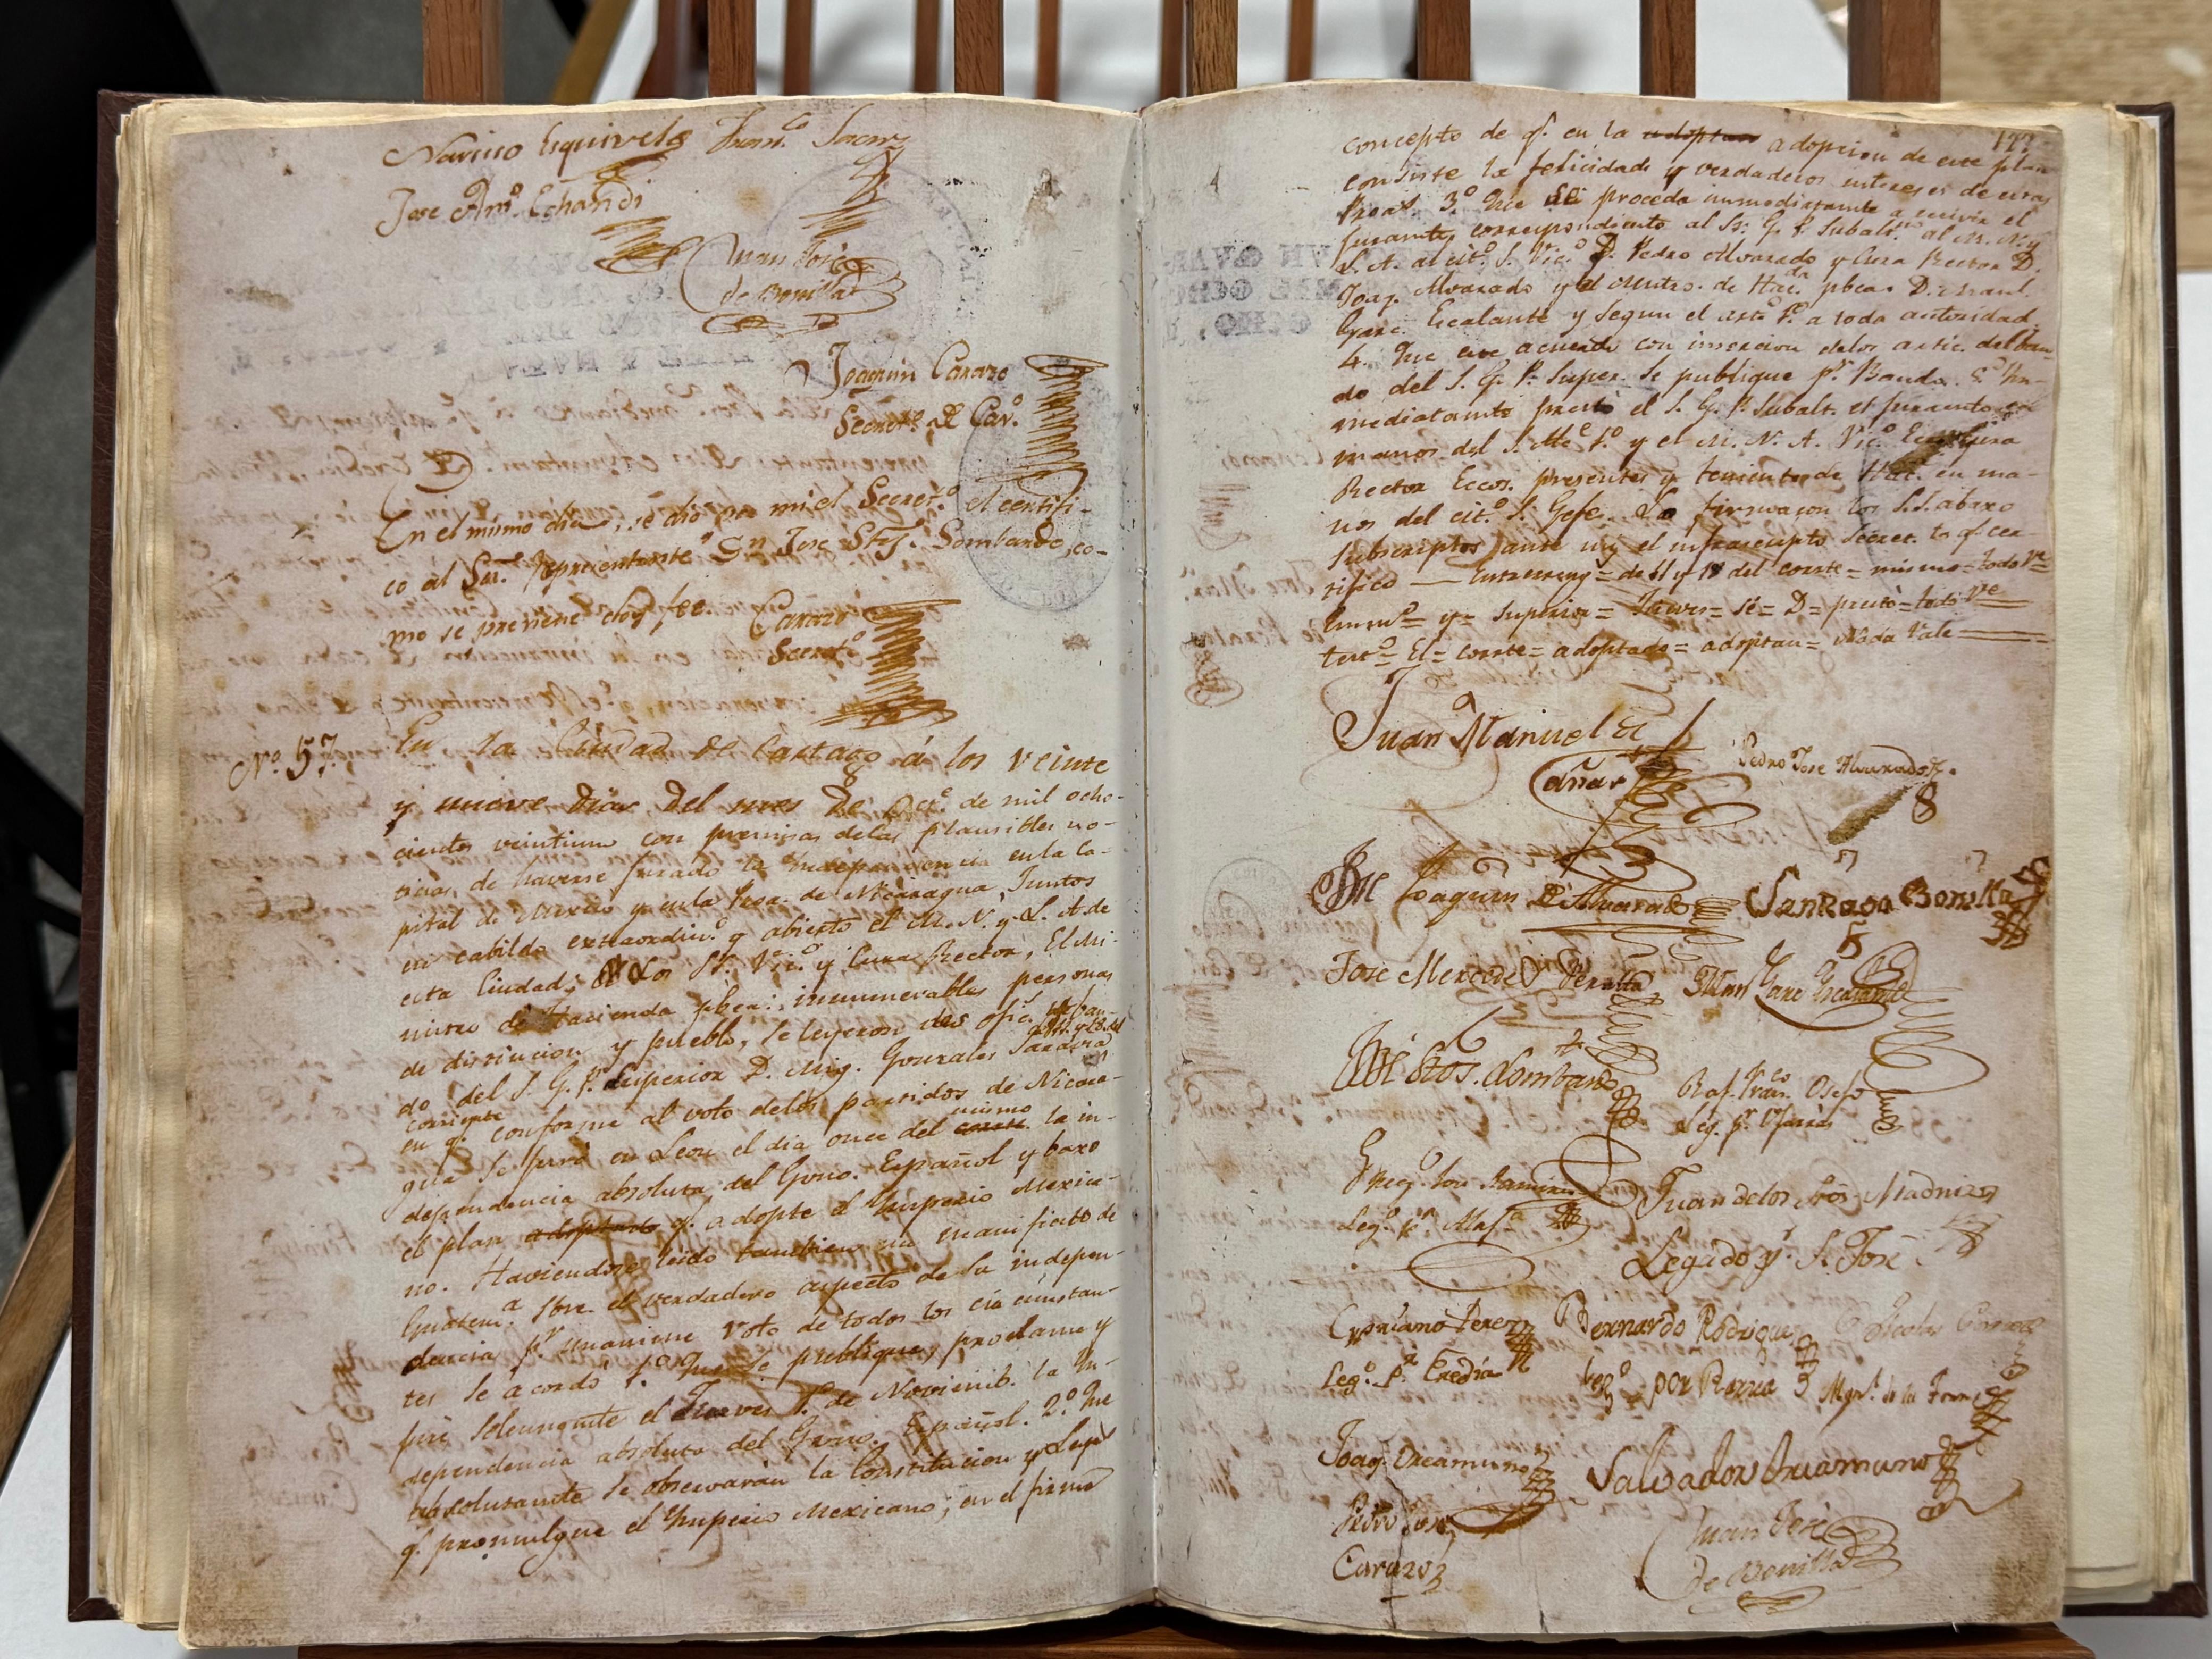 Narciso Esquivel Franco. Saenz
Jose Anto. Echandi
Juan José
de Bonilla
Joaquin Carazo
Secreto. de Cav.
En el mismo dia, se dió por mi el Secreto. el certifi-
co al Sor. Representante Dn. José Stos. Lombardo, co-
mo se previene doy fee. Carazo
Secreto.
No. 57. En la Ciudad de Cartago á los veinte
y nueve dias del mes de Oct. de mil ocho-
cientos veintiuno con premisas delas plausibles no-
ticias de haverse jurado la Independencia en la Ca-
pital de Mexico y en la Proa. de Nicaragua, Juntos
en cabildo extraordino. y abierto el M. N. y L. A. de
esta Ciudad; Los SS. Vico. y Cura Rector, El Mi-
nistro de Hacienda pbca; innumerables personas
de distincion y pueblo, se leyeron los ofic. y ban-
de 11 y 18 del
do del S. G. P. Superior D. Mig. Gonzales Saravia
corriente
en q. conforme al voto delos partidos de Nicara-
mismo
gua se juró en Leon el dia once del corrte. la in-
dependencia absoluta del Govno. Español y baxo
el plan adoptado q. adopte el Imperio Mexica-
no. Haviendose leido tambien un manifiesto de
Guatema. sbre. el verdadero aspecto de su indepen-
dencia pr. unanime voto de todos los circunstan-
tes se acordó 1o. Que se publique, proclame y
jure solemnente el Jueves 1o. de Noviemb. la In-
dependencia absoluta del Govno. Español. 2o. Que
absolutamte. se observarán la Constitucion y Leyes
q. promulgue el Imperio Mexicano, en el firme
122
concepto de q. en la adoptan adopcion de este plan
consiste la felicidad y verdaderos intereses de estas
Proas. 3o. Que se proceda inmediatamte. a recivir el
juramto. correspondiente al Sr. G. P. Subalto. al M. N. y
L. A. al cito. S. Vico. D. Pedro Alvarado y Cura Rector D.
Joaq. Alvarado y el Mntro. de Hacda. pbca. D. Manl.
Garc. Escalante y segun el arto. 1o. a toda autoridad.
4. Que este acuerdo con insercion delos artic. del ban-
do del S. G. P. Super. se publique pr. Bando. 5o. In-
mediatamte. prestó el S. G. P. Subalt. el juramento en
manos del S. Alce. 1o. y el M. N. A. Vico. Ecco. Cura
Rector Eccos. presentes y teniente de Hac. en ma-
nos del cito. S. Gefe. Lo firmaron los S.S. abaxo
subscriptos ante mi el infrascripto Secret. lo q. cer-
tifico — Entrerreng= de 11 y 18 del corrte= mismo= todo Ve=
Enmdo= y= Superior= Jueves= sé= D= prestó= todo Ve
testo= El= corrte= adoptado= adoptan= Nada Vale
Juan Manuel de
Cañas
Pedro José Alvarado
José Joaquin de Alvarado
Santiago Bonilla
José Mercedes Peralta
Man. Garc. Escalante
José Stos. Lombardo
Raf. Franco. Osejo
Leg. pr. Ujarrás
Greg. José Ramirez
Lego. pr. Alaja
Juan de los Stos. Madriz
Legado pr. S. José
Cypriano Perez
Lego. pr. Eredia
Bernardo Rodriguez
Lego. por Barva
Nicolas Carazo
Migl. de la Torre
Joaq. Oreamuno
Salvador Oreamuno
Pedro José
Carazo
Juan José
de Bonilla